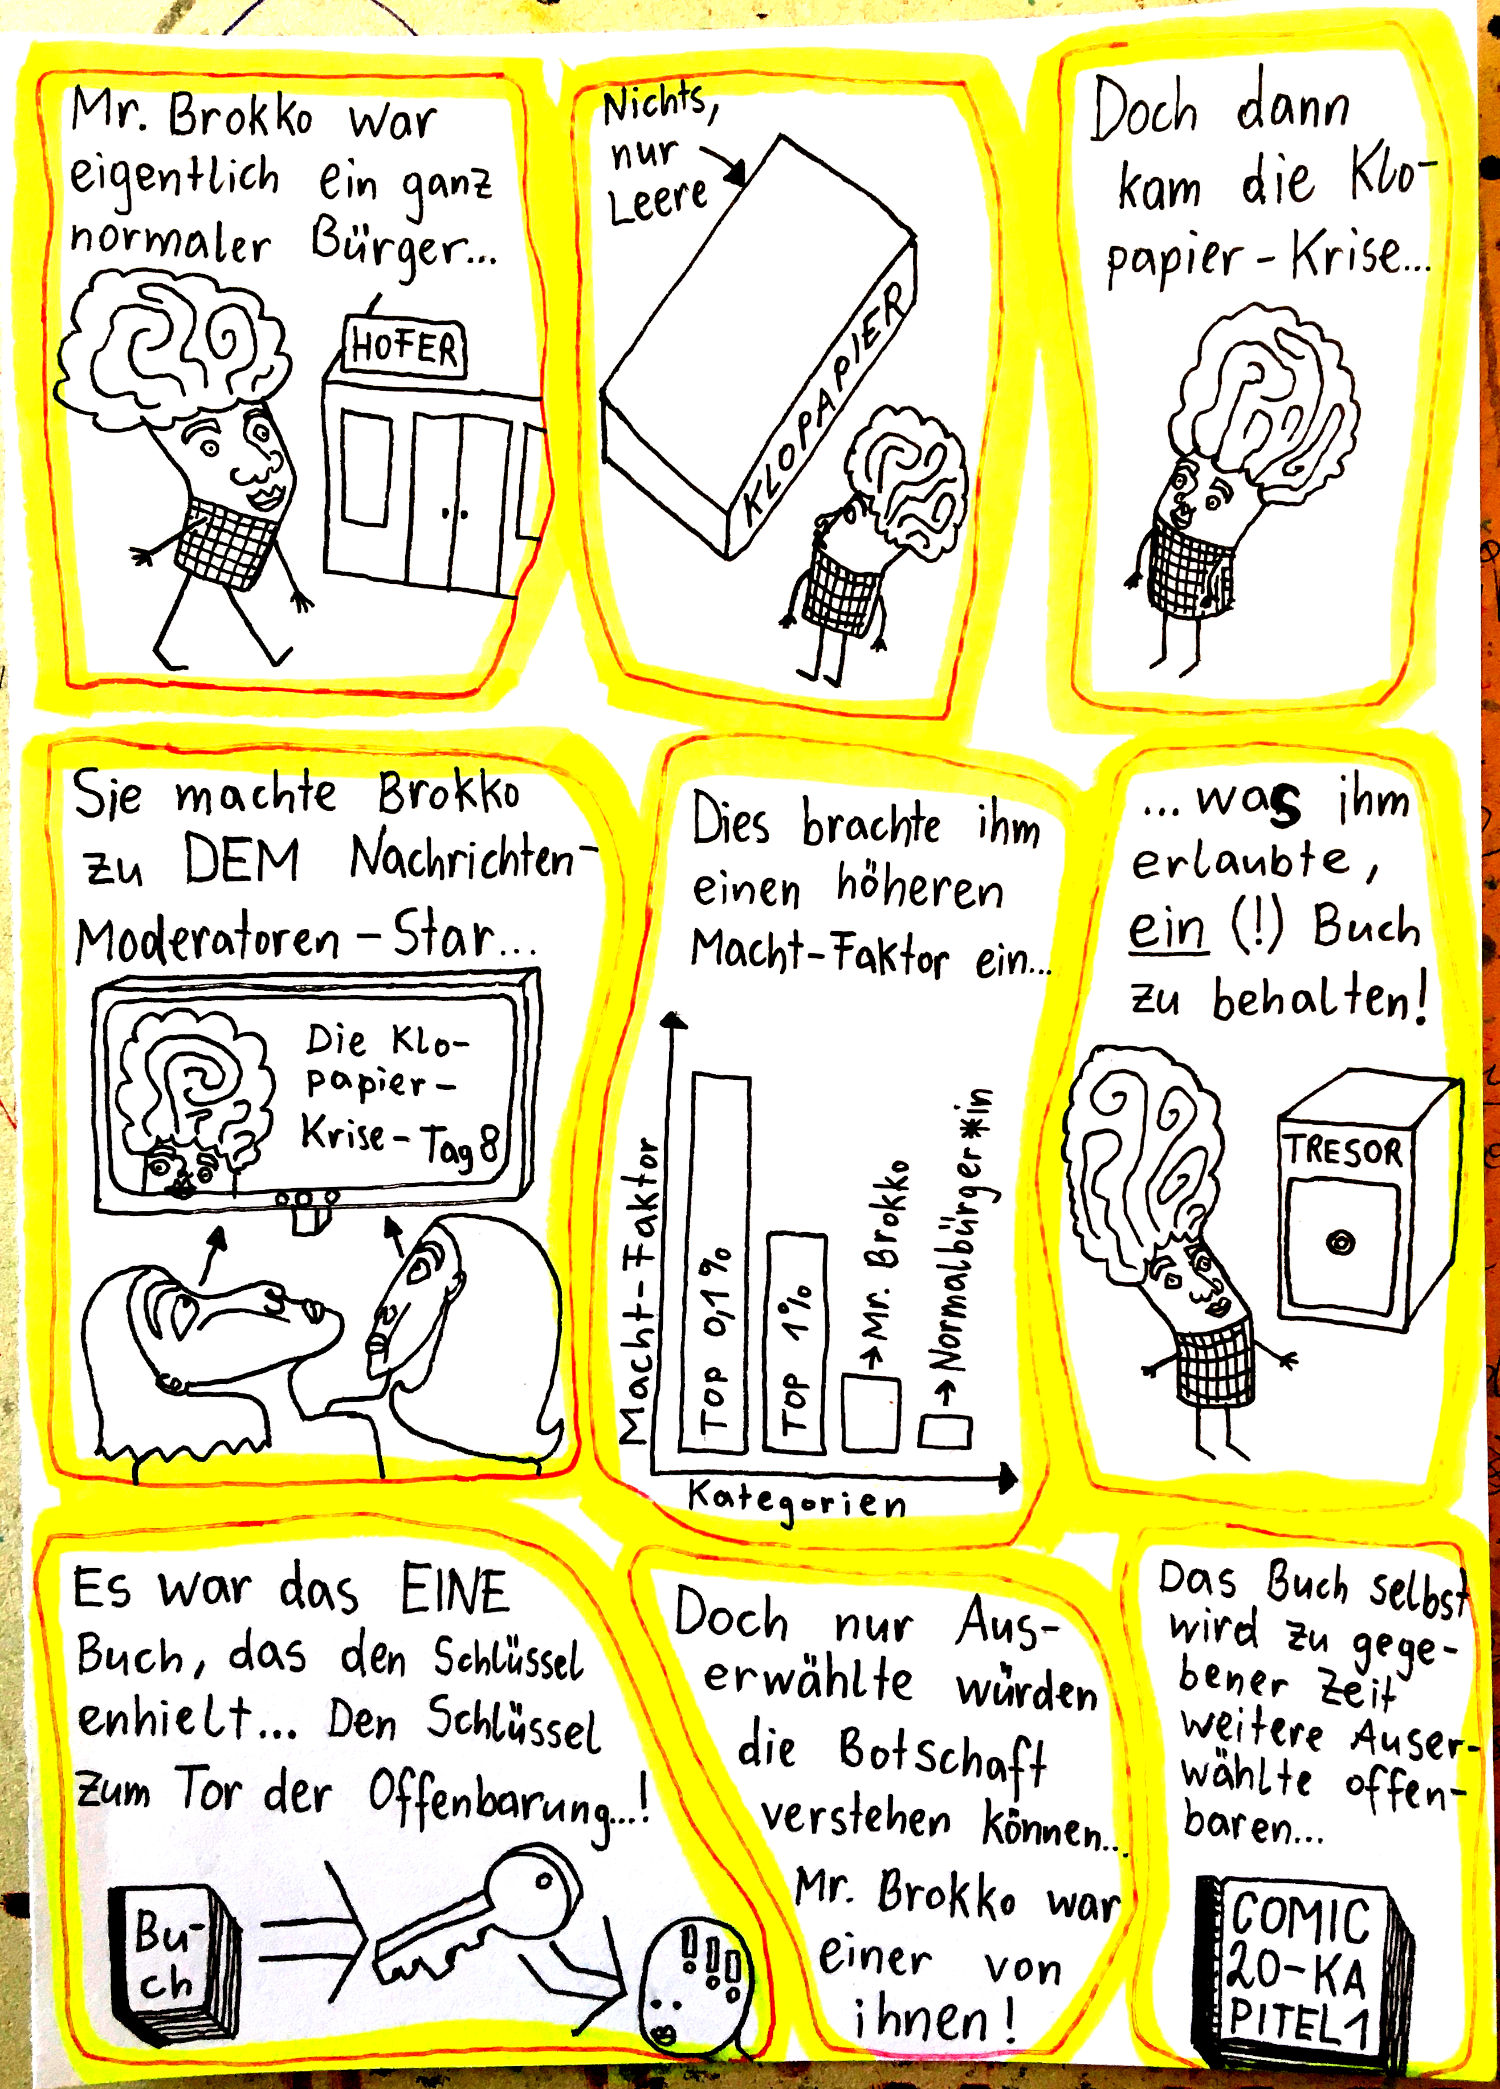 Mr. Brokko war
eigentlich ein ganz
normaler Bürger...
HOFER
Nichts,
nur
Leere
KLOPAPIER
Doch dann
kam die Klo-
papier-Krise...
Sie machte Brokko
zu DEM Nachrichten-
Moderatoren-Star...
Die Klo-
papier-
Krise-Tag 8
Dies brachte ihm
einen höheren
Macht-Faktor ein...
Macht-Faktor
TOP 0,1%
TOP 1%
→Mr. Brokko
→Normalbürger*in
Kategorien
...was ihm
erlaubte,
ein (!) Buch
zu behalten!
TRESOR
Es war das EINE
Buch, das den Schlüssel
enhielt... Den Schlüssel
zum Tor der Offenbarung...!
Bu-
ch
!!!
Doch nur Aus-
erwählte würden
die Botschaft
verstehen können...
Mr. Brokko war
einer von
ihnen!
Das Buch selbst
wird zu gege-
bener Zeit
weitere Auser-
wählte offen-
baren...
COMIC
20-KA
PITEL1